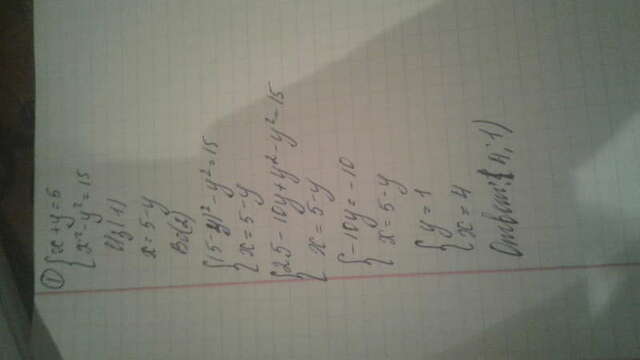 ① { x+y=5
{ x²-y²=15
Из (1)
x=5-y
Во(2)
{ (5-y)²-y²=15
{ x=5-y
{ 25-10y+y²-y²=15
{ x=5-y
{ -10y=-10
{ x=5-y
{ y=1
{ x=4
Ответ: (4; 1)